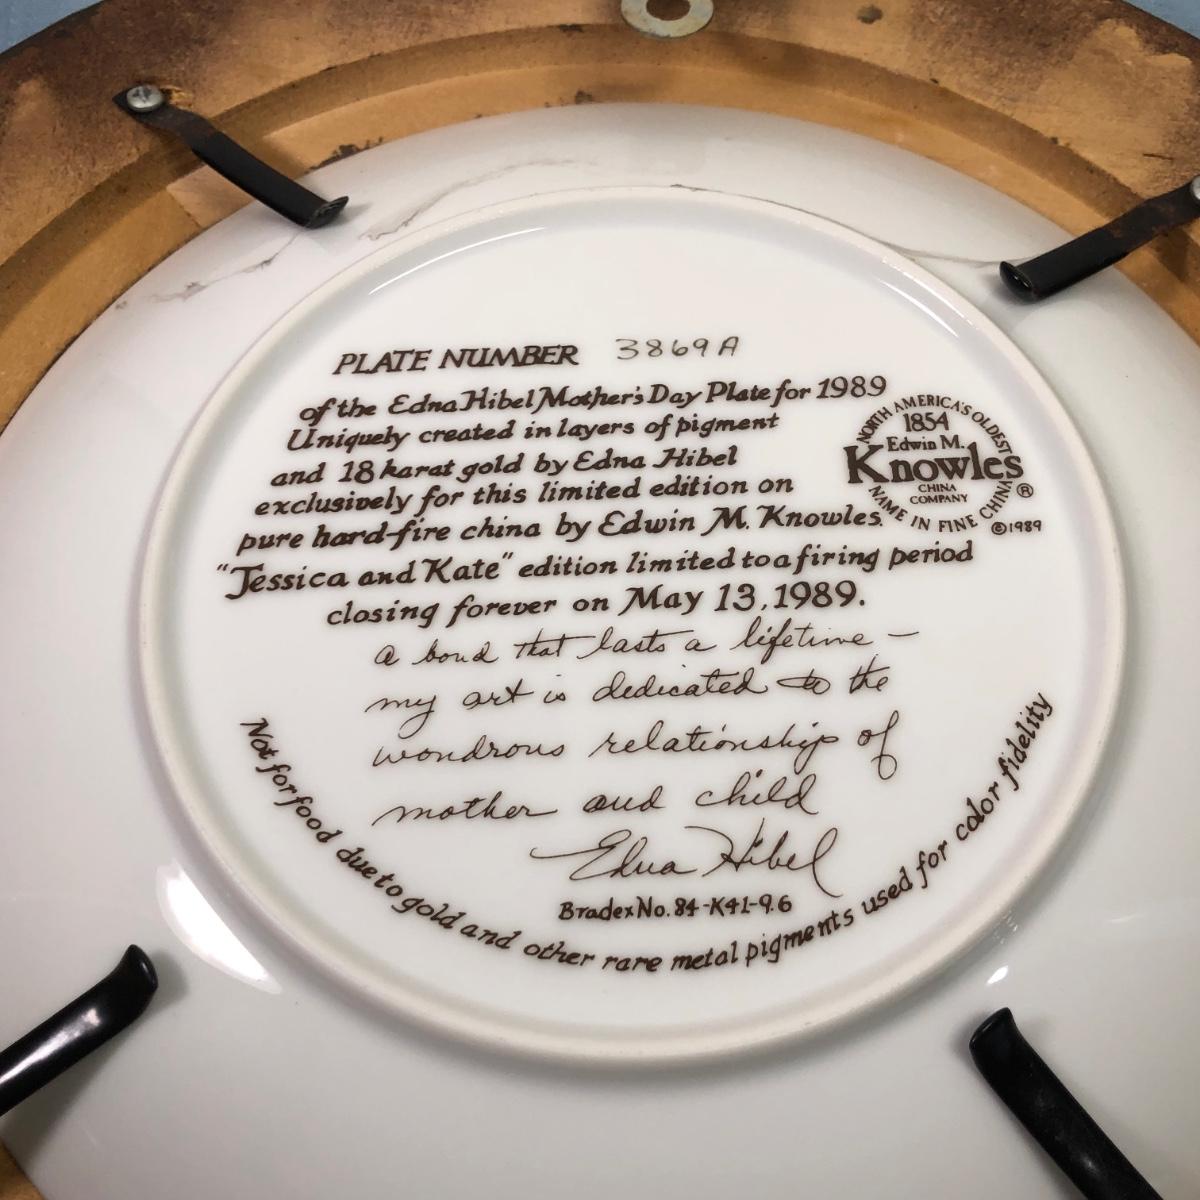 PLATE NUMBER 3869A
of the Edna Hibel Mother's Day Plate for 1989
Uniquely created in layers of pigment
and 18 karat gold by Edna Hibel
exclusively for this limited edition on
pure hard-fire china by Edwin M. Knowles.
"Jessica and Kate" edition limited to a firing period
closing forever on May 13, 1989.
NORTH AMERICA'S OLDEST
1854
Edwin M.
Knowles
CHINA
COMPANY
NAME IN FINE CHINA ®
©1989
a bond that lasts a lifetime —
my art is dedicated to the
wondrous relationship of
mother and child
Edna Hibel
Bradex No. 84-K41-9.6
Not for food due to gold and other rare metal pigments used for color fidelity